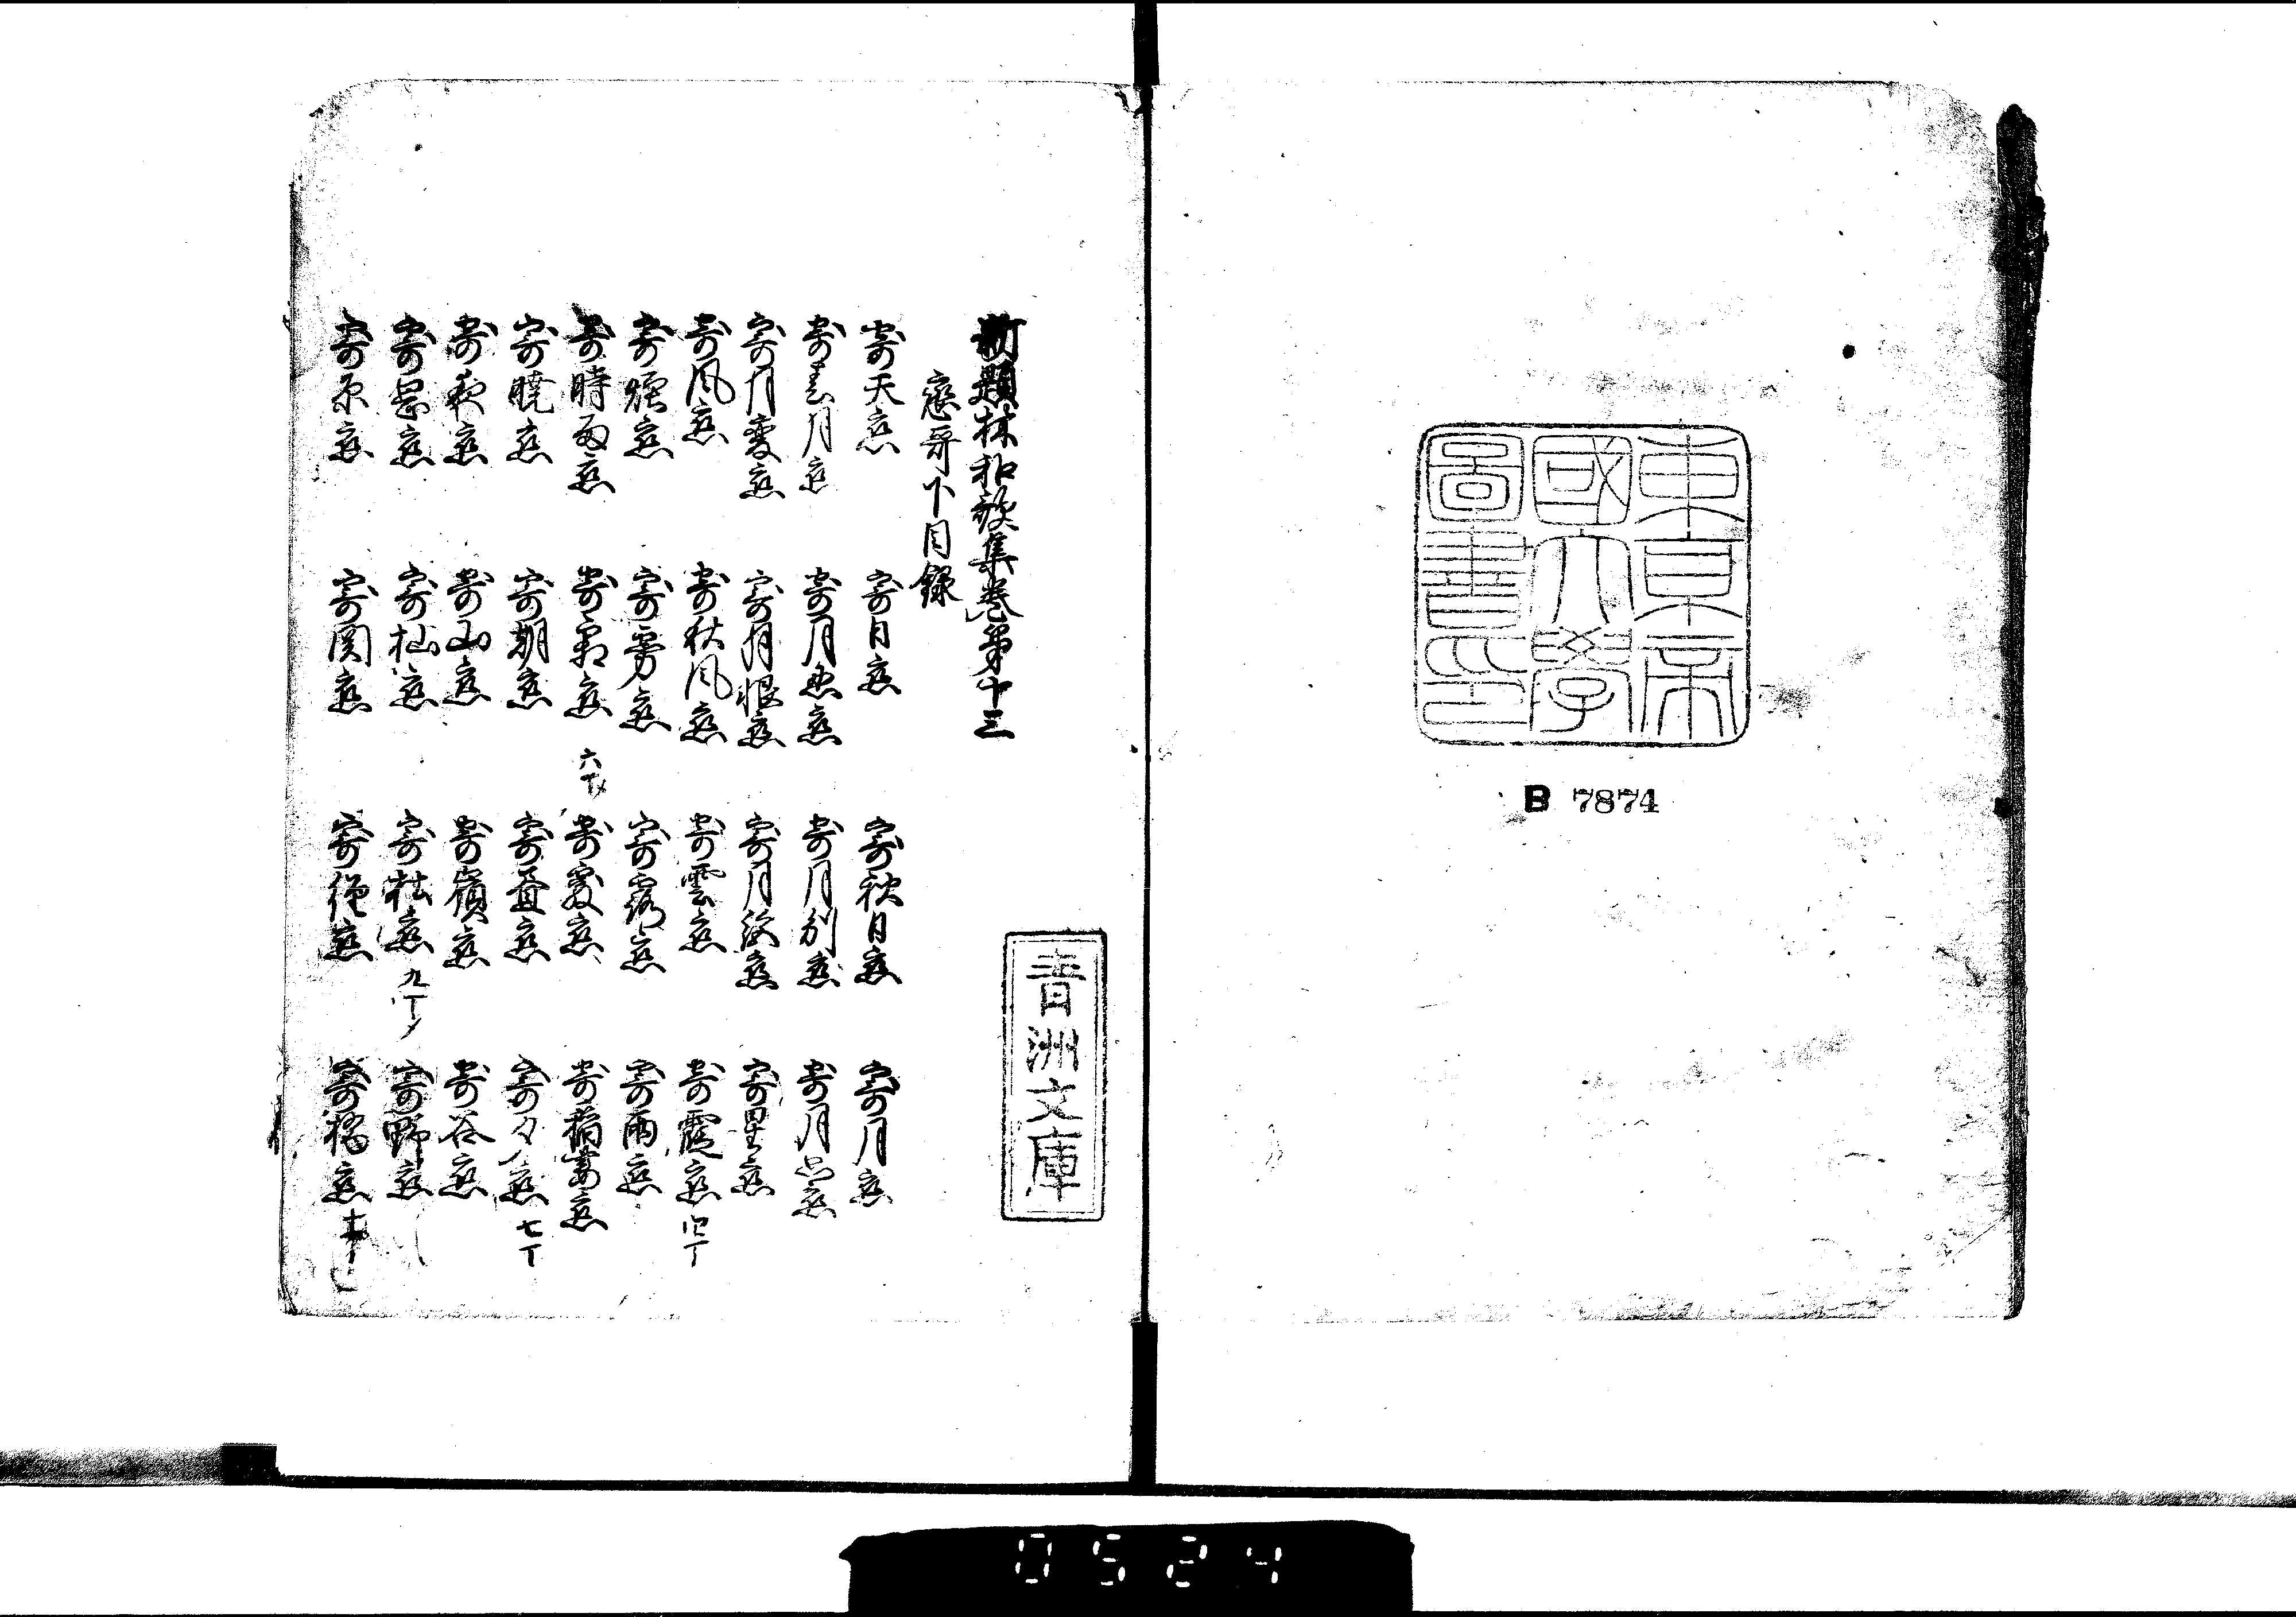 東京帝
國大學
圖書印
B 7874
新題林和謌集巻第十三
青洲文庫
恋哥下目録
寄天恋 寄日恋 寄秋日恋 寄月恋
寄春月恋 寄月忍恋 寄月別恋 寄月忘恋
寄月変恋 寄月恨恋 寄月絶恋 寄星恋
寄風恋 寄秋風恋 寄雲恋 寄霞恋 四丁
寄煙恋 寄雰恋 寄露恋 寄雨恋
寄時雨恋 寄霜恋 六丁メ 寄霰恋 寄稲妻恋
寄暁恋 寄朝恋 寄昼恋 寄夕恋 七丁
寄夜恋 寄山恋 寄嶺恋 寄谷恋
寄岡恋 寄杣恋 寄杜恋 九丁メ 寄野恋
寄原恋 寄関恋 寄径恋 寄橋恋
0524